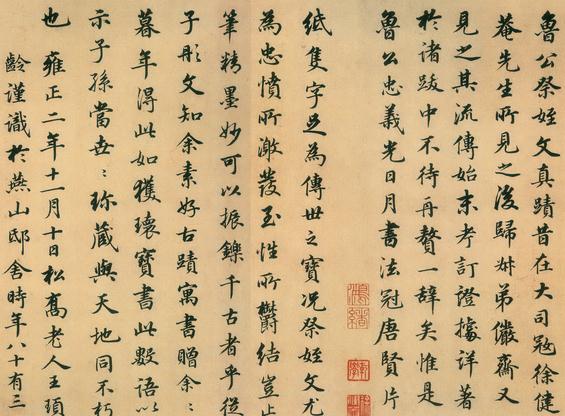 魯公祭姪文真蹟昔在大司寇徐健
菴先生所見之後歸叔弟儼齋又
見之其流傳始末考訂證據詳著
於諸跋中不待再贅一辭矣惟是
魯公忠義光日月書法冠唐賢片
紙隻字足為傳世之寶況祭姪文尤
為忠憤所激發至性所鬱結豈止
筆精墨妙可以振鑠千古者乎從
子彤文知余素好古蹟寓書贈余〻
暮年得此如獲瓌寶書此數語以
示子孫當世〻珍藏與天地同不朽
也雍正二年十一月十日松喬老人王頊
齡謹識於燕山邸舍時年八十有三